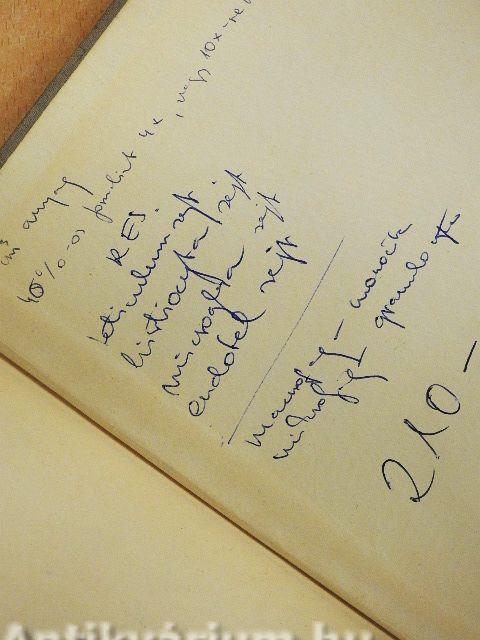 cm³ anyag
40%-os formalint 4x, vagy 10x-re
RES.
reticulum sejt
histiocyta sejt
microglia sejt
endotel sejt
macrofág – monociták
mikrofág granulocyta
210 –
Antikvárium.hu